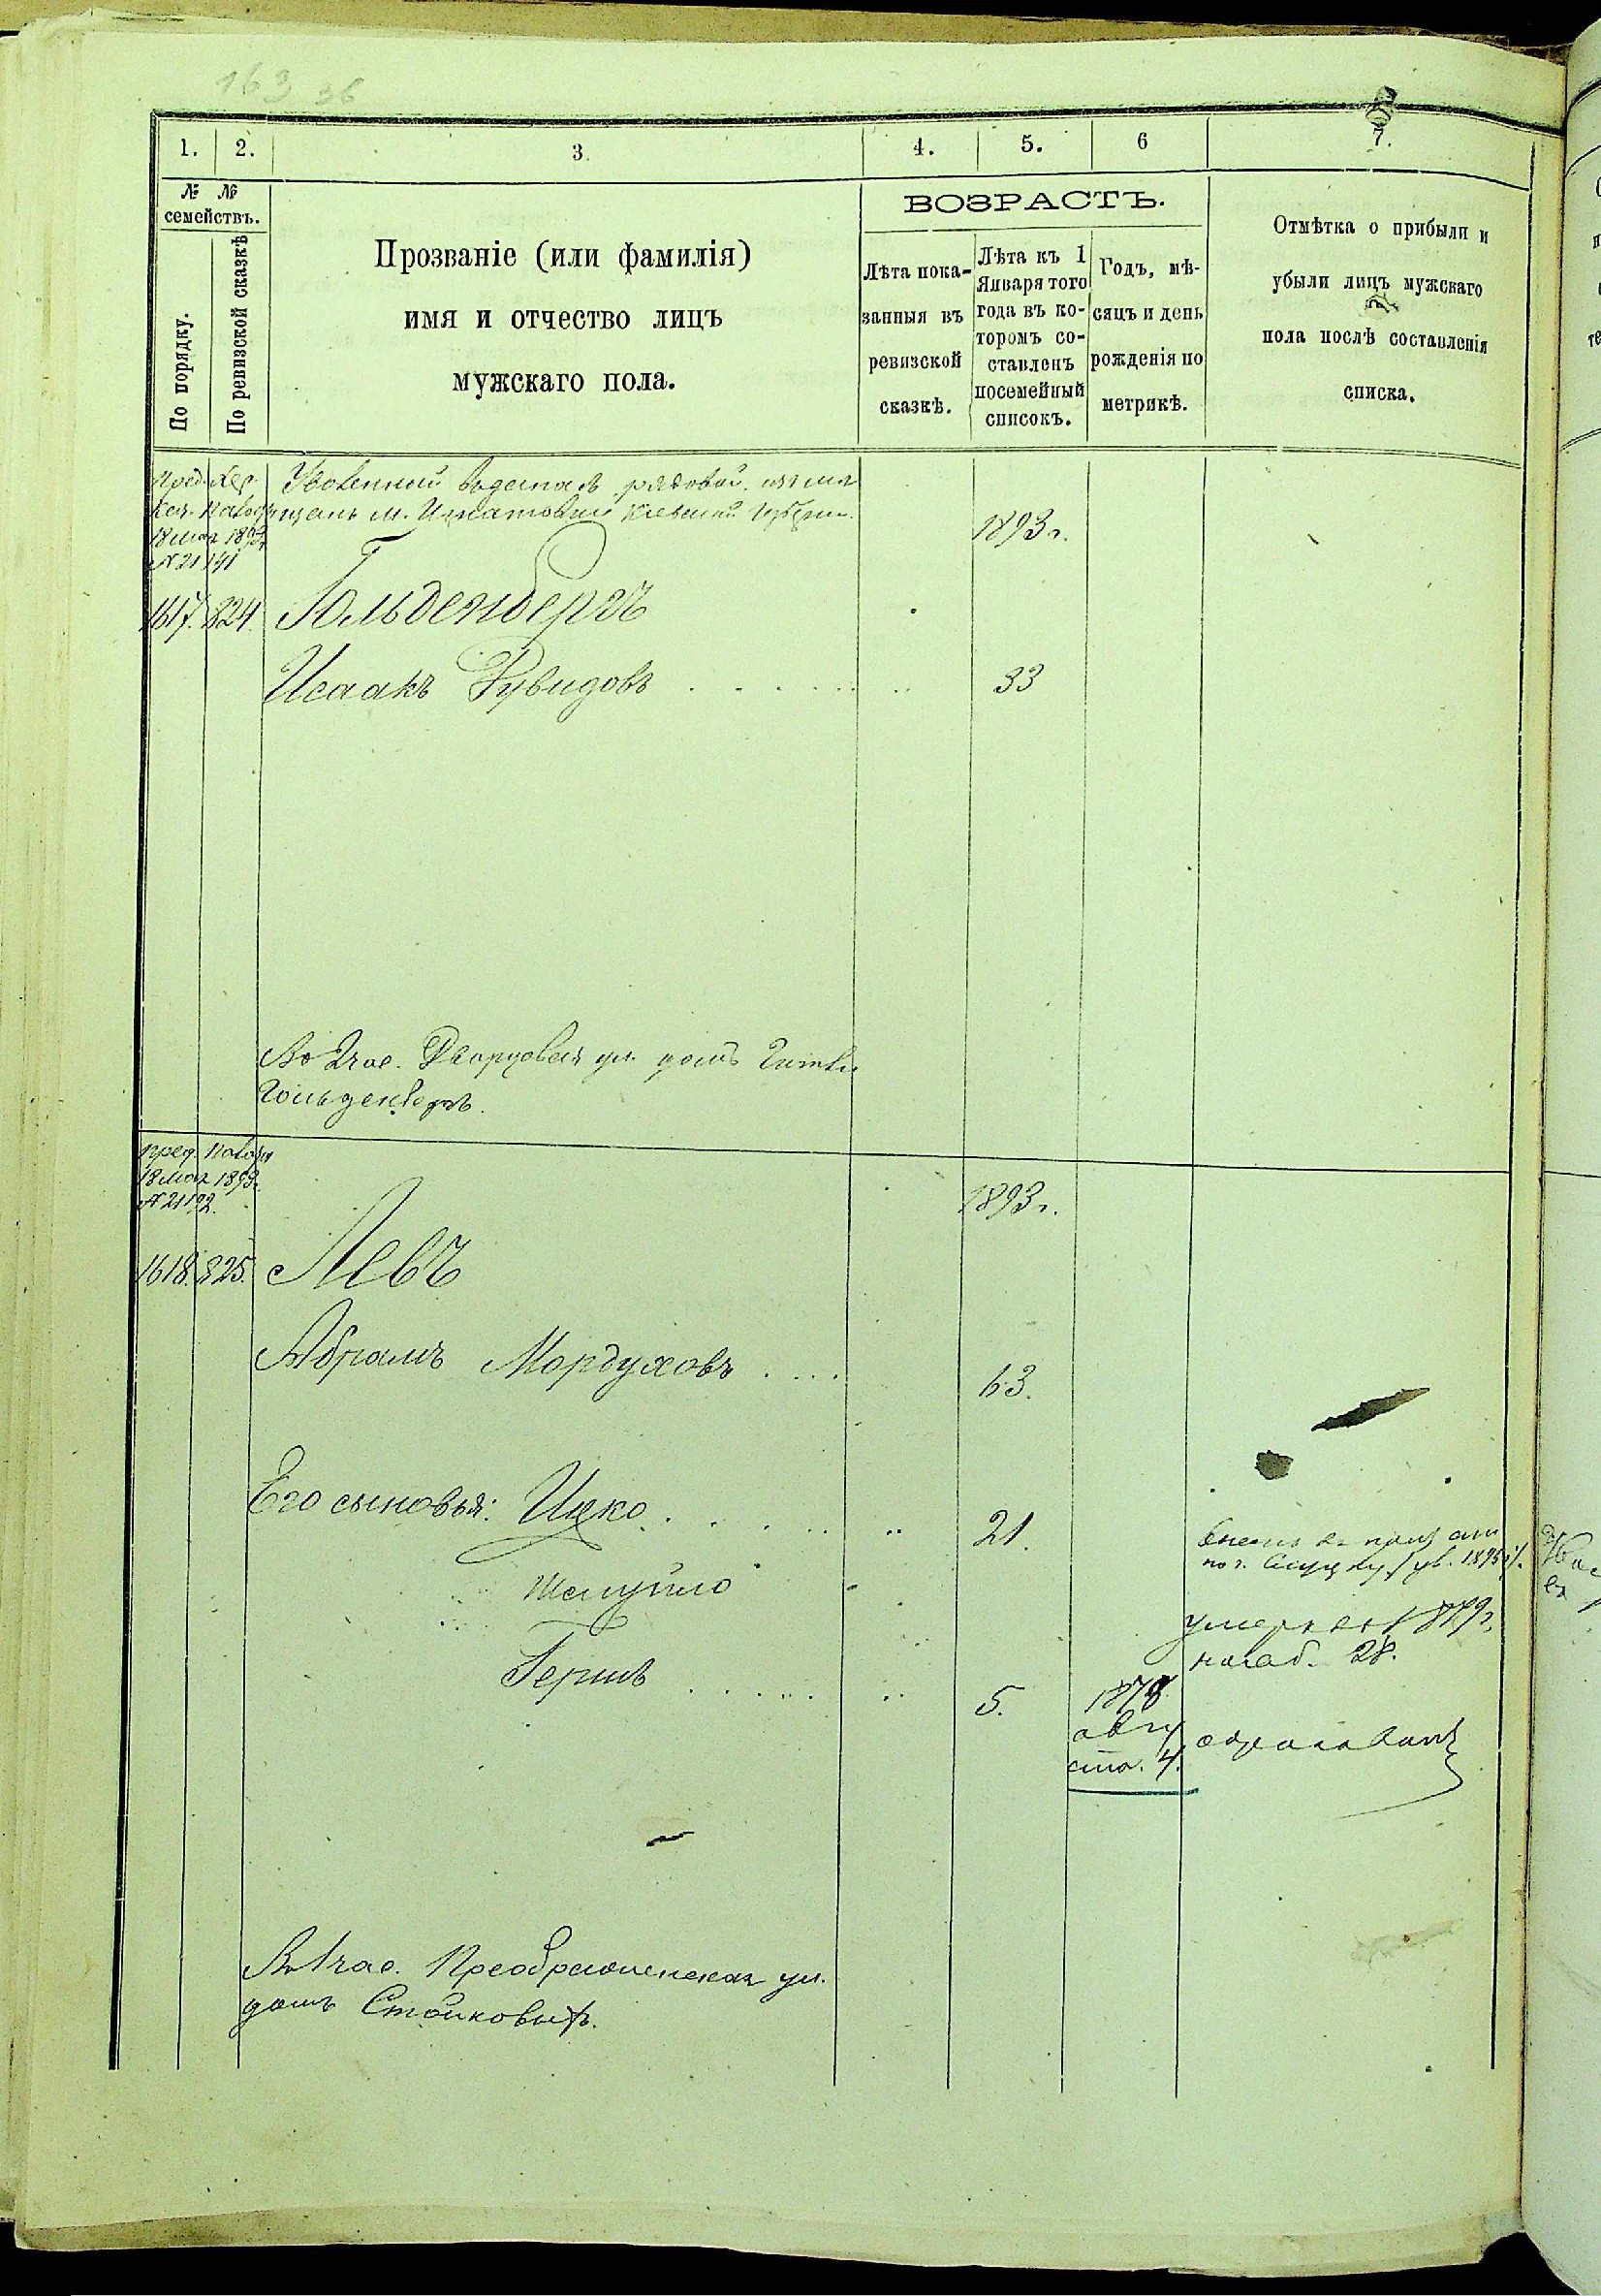 163 36
1. 2. 3. 4. 5. 6 7.
№ №
семействъ.
По порядку.
По ревизской сказкѣ
Прозваніе (или фамилія)
имя и отчество лицъ
мужскаго пола.
ВОЗРАСТЪ.
Лѣта пока-
занныя въ
ревизской
сказкѣ.
Лѣта къ 1
Января того
года въ ко-
торомъ со-
ставленъ
посемейный
списокъ.
Годъ, мѣ-
сяцъ и день
рожденія по
метрикѣ.
Отмѣтка о прибыли и
убыли лицъ мужскаго
пола послѣ составленія
списка.
Пред. Хер.
18 мая 1893
№ 21141
Уволенный въ рядовой изъ мѣ
щанъ м. Игнатовки Кіевской Губерніи.
1893 г.
1617. 824. Гольденбергъ
Исаакъ Рувидовъ 33
Во 2 час. Дворцовая ул. домъ
Гольденбергъ.
Пред.
18 мая 1893
№ 21192.
1893 г.
1618. 825. Левъ
Абрамъ Мордуховъ 63.
Его сыновья: Ицко 21.
Шмуйло
умеръ 1879 г.
28.
Гершъ 5. 1878
авгу
ста. 4.
Въ 1 час. Преображенская ул.
домъ Стойковыхъ.